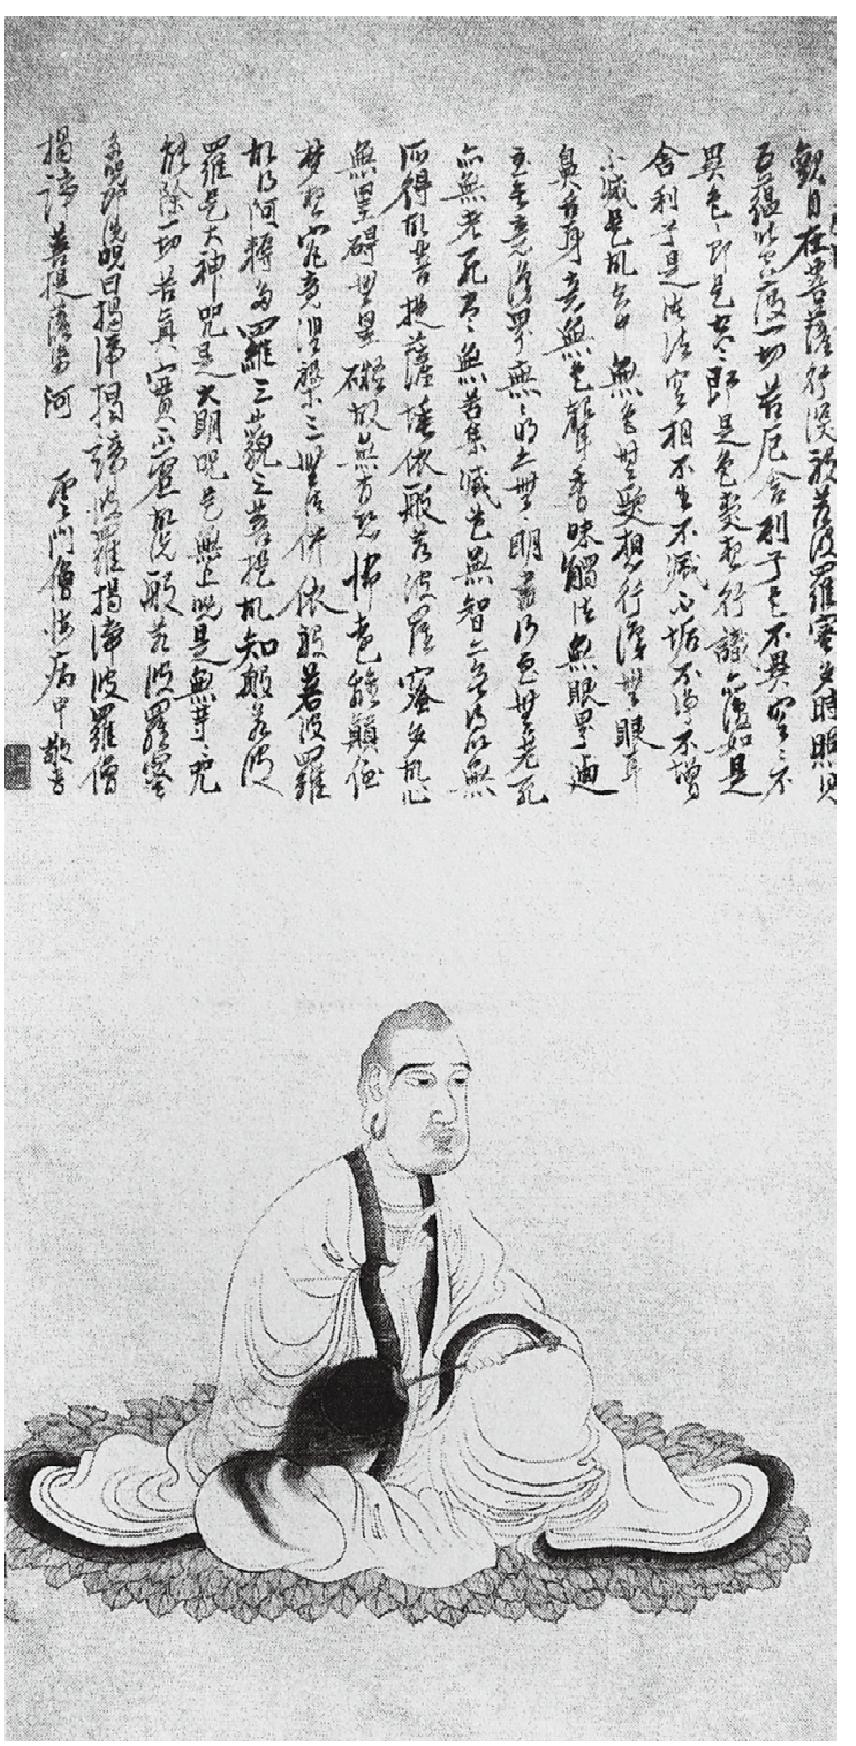 觀自在菩薩行深般若波羅蜜多時照見
五蘊皆空度一切苦厄舍利子色不異空〻不
異色〻即是空〻即是色受想行識亦復如是
舍利子是諸法空相不生不滅不垢不淨不增
不減是故空中無色無受想行識無眼耳
鼻舌身意無色聲香味觸法無眼界迺
至無意識界無〻明亦無〻明盡乃至無老死
亦無老死盡〻無苦集滅道無智亦無得以無
所得故菩提薩埵依般若波羅蜜多故心
無罣碍無罣礙故無有恐怖遠離顛倒
夢想究竟涅槃三世諸佛依般若波羅
故得阿耨多羅三藐三菩提故知般若波
羅是大神咒是大明咒是無上咒是無等〻咒
能除一切苦真實不虛故說般若波羅蜜
多咒即說咒曰揭諦揭諦波羅揭諦波羅僧
揭諦菩提薩婆河 雲門僧病中敬書